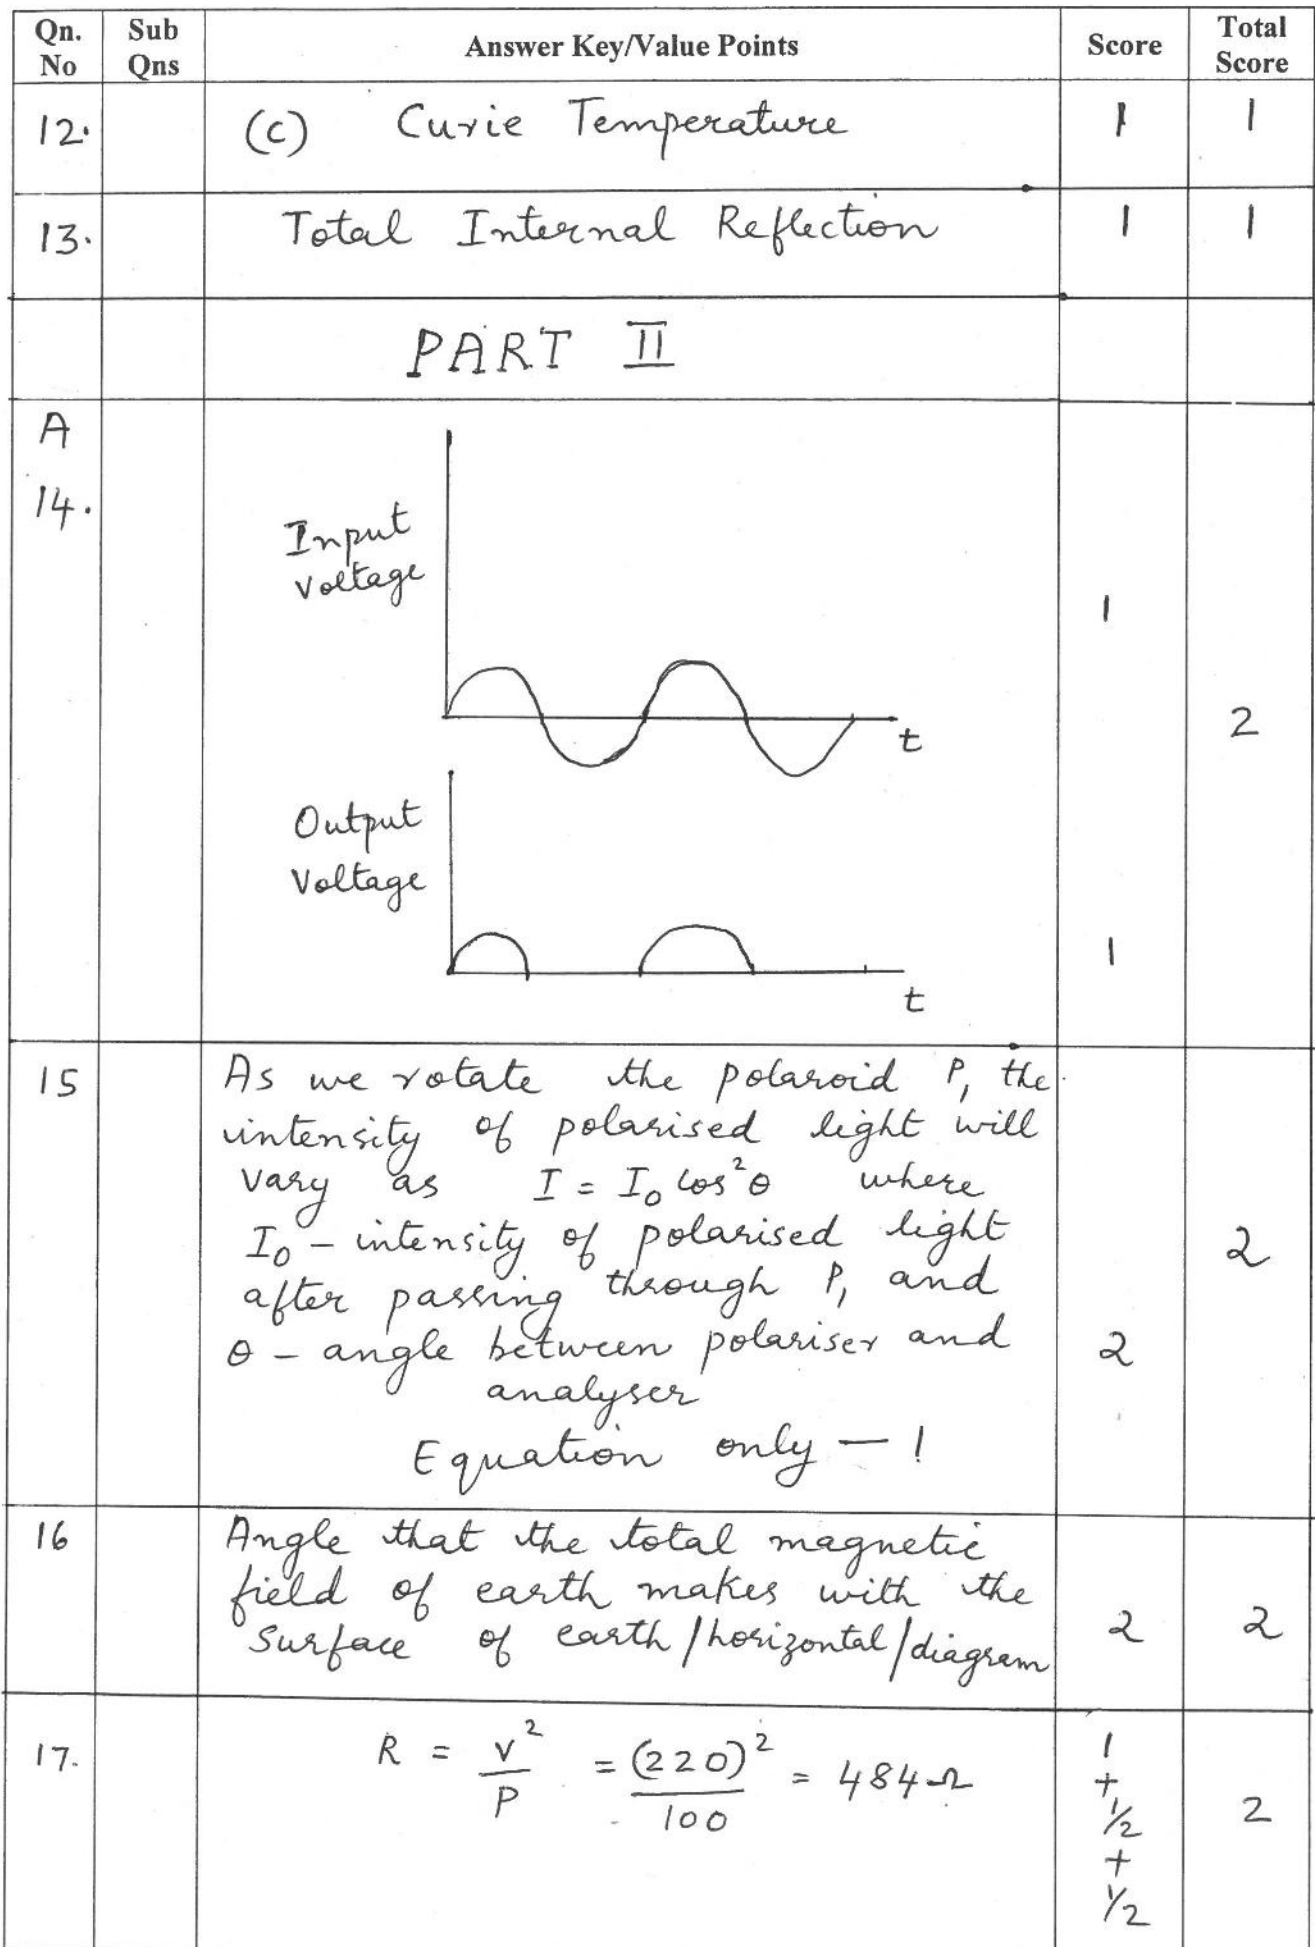 Qn. No Sub Qns Answer Key/Value Points Score Total Score
12. (c) Curie Temperature 1 1
13. Total Internal Reflection 1 1
PART II
A
14.
Input
voltage
1
t
2
Output
Voltage
1
t
15 As we rotate the polaroid P, the
intensity of polarised light will
vary as I = I₀ cos²θ where
I₀ – intensity of polarised light
after passing through P, and
θ – angle between polariser and
analyser
2
2
Equation only – 1
16 Angle that the total magnetic
field of earth makes with the
surface of earth/horizontal/diagram 2 2
17. R = V²/P = (220)²/100 = 484Ω
1
+
1/2
+
1/2
2